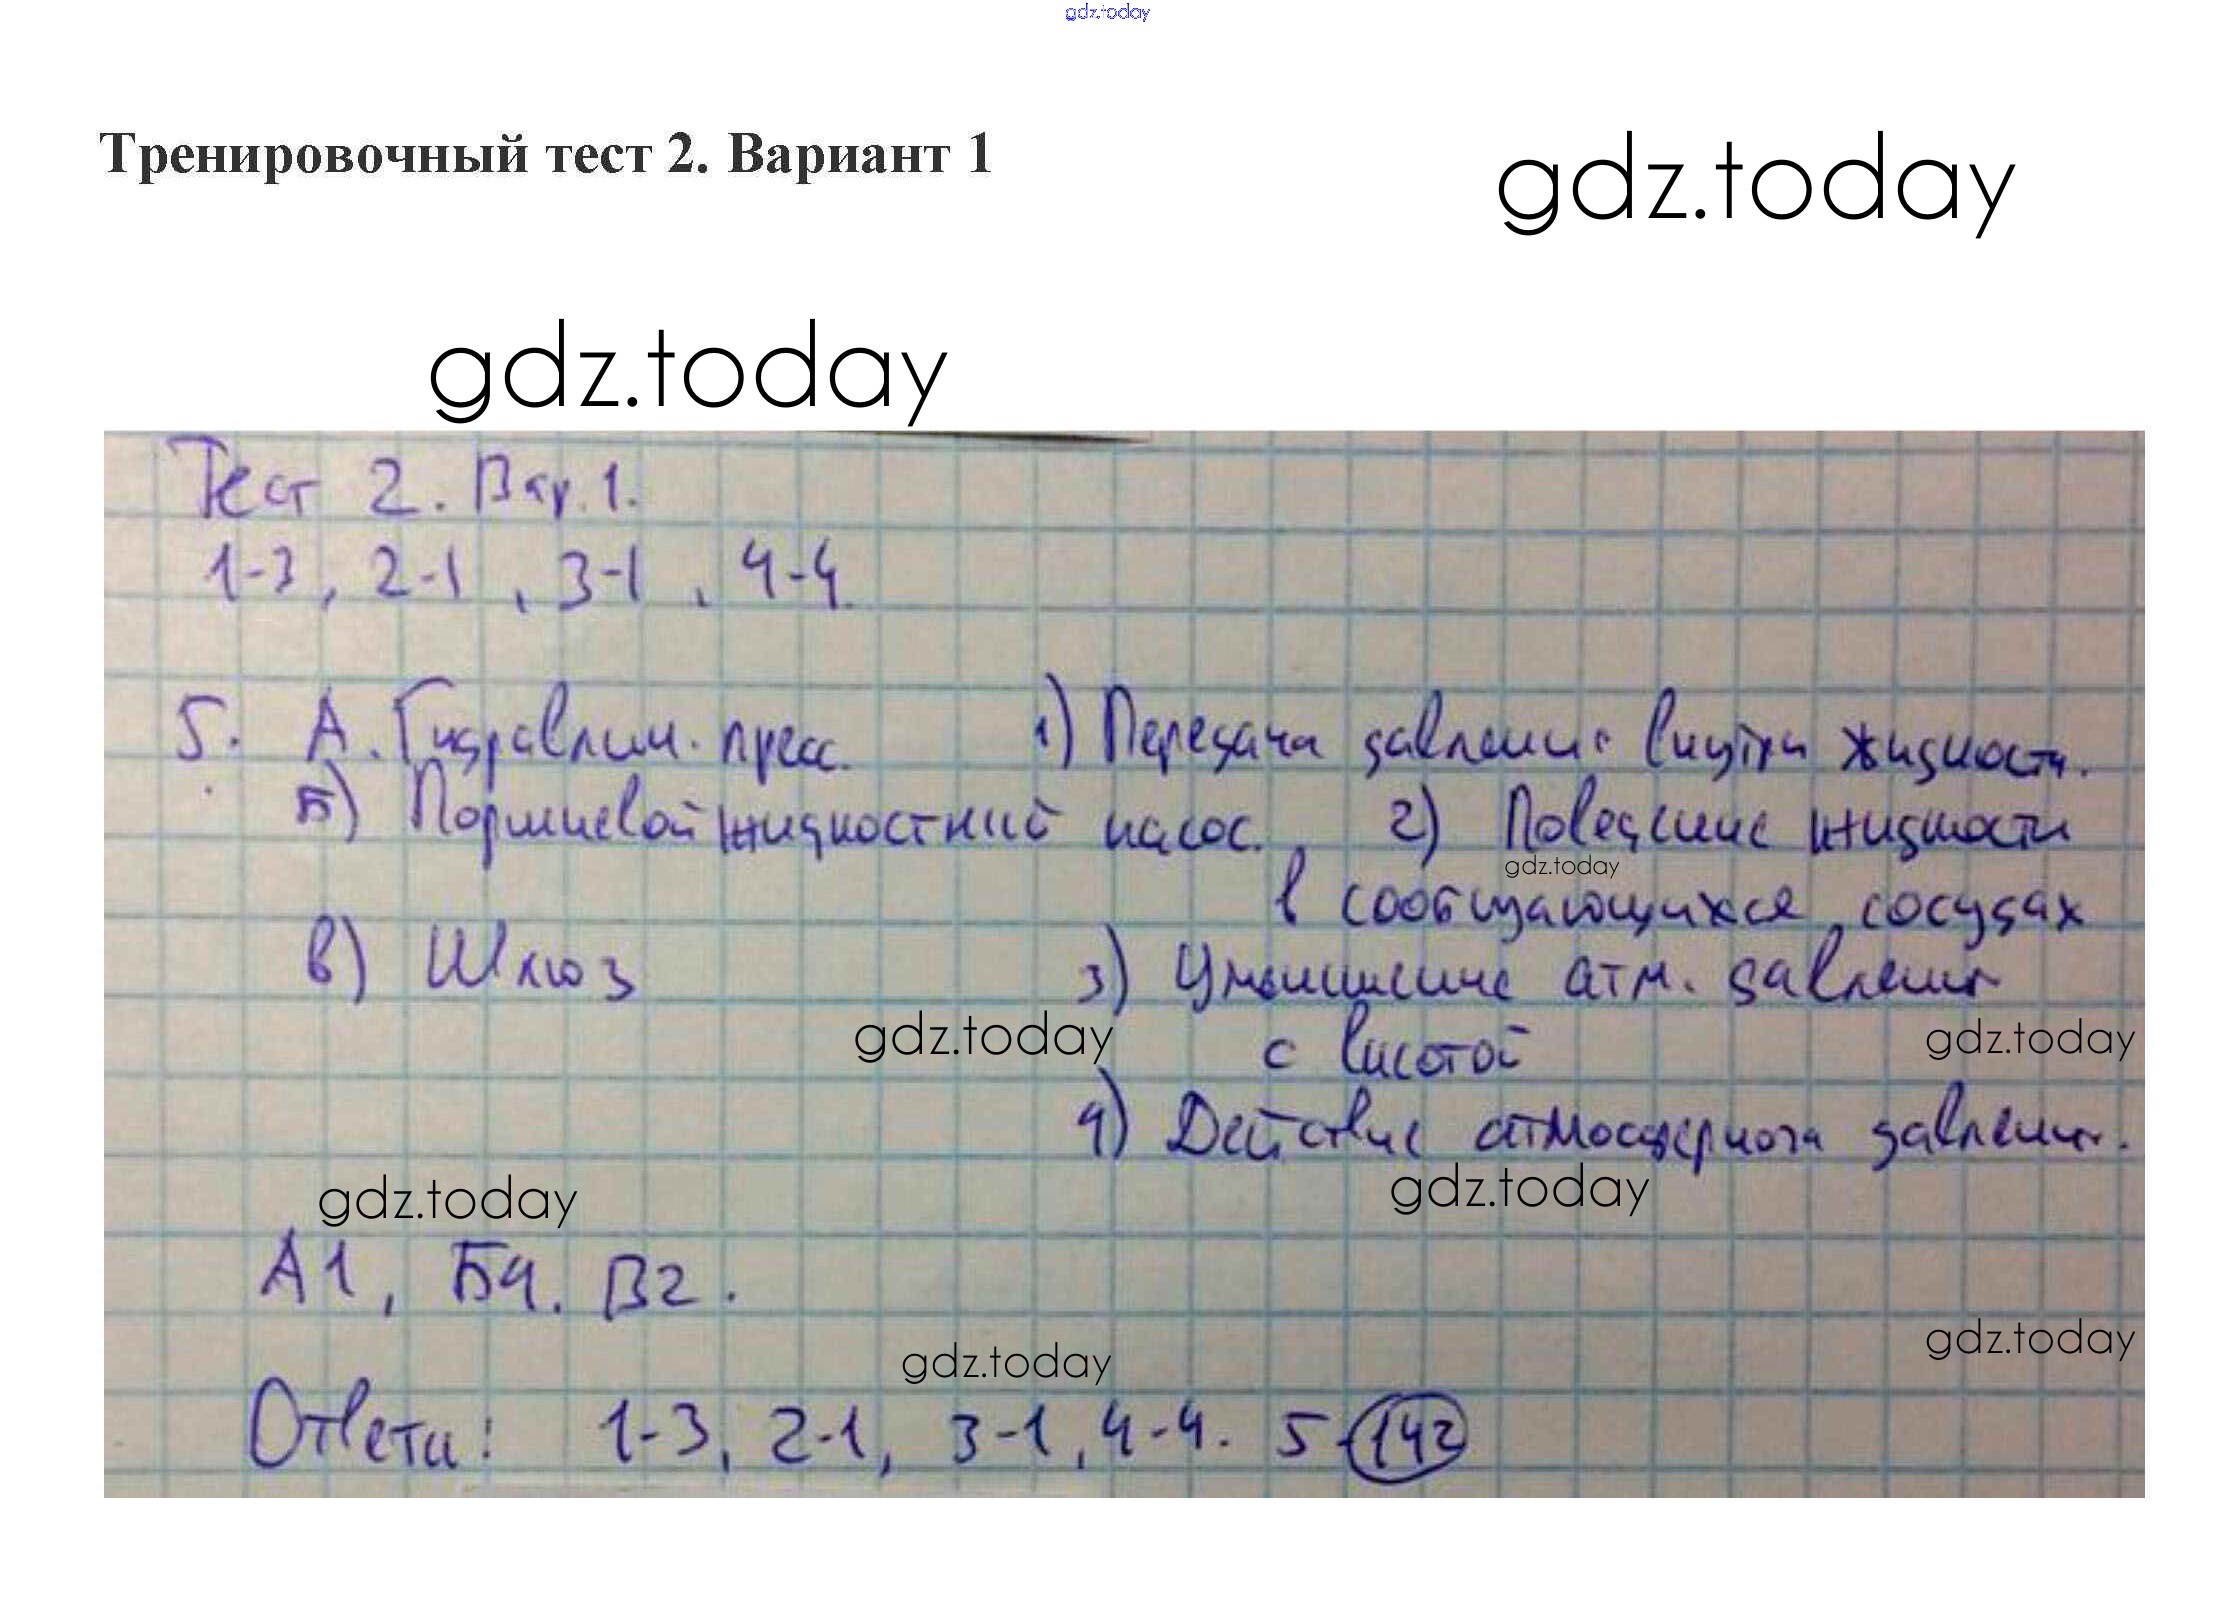 gdz.today
Тренировочный тест 2. Вариант 1
gdz.today
gdz.today
Тест 2. Вар.1.
1-3, 2-1, 3-1, 4-4.
5. А. Гидравлич. пресс. 1) Передача давления внутри жидкости.
Б) Поршневой жидкостный насос. 2) Поведение жидкости
gdz.today
в сообщающихся сосудах
в) Шлюз 3) Уменьшение атм. давления
gdz.today с высотой gdz.today
4) Действие атмосферного давления.
gdz.today gdz.today
А1, Б4. В2.
gdz.today gdz.today
Ответы: 1-3, 2-1, 3-1, 4-4. 5-142